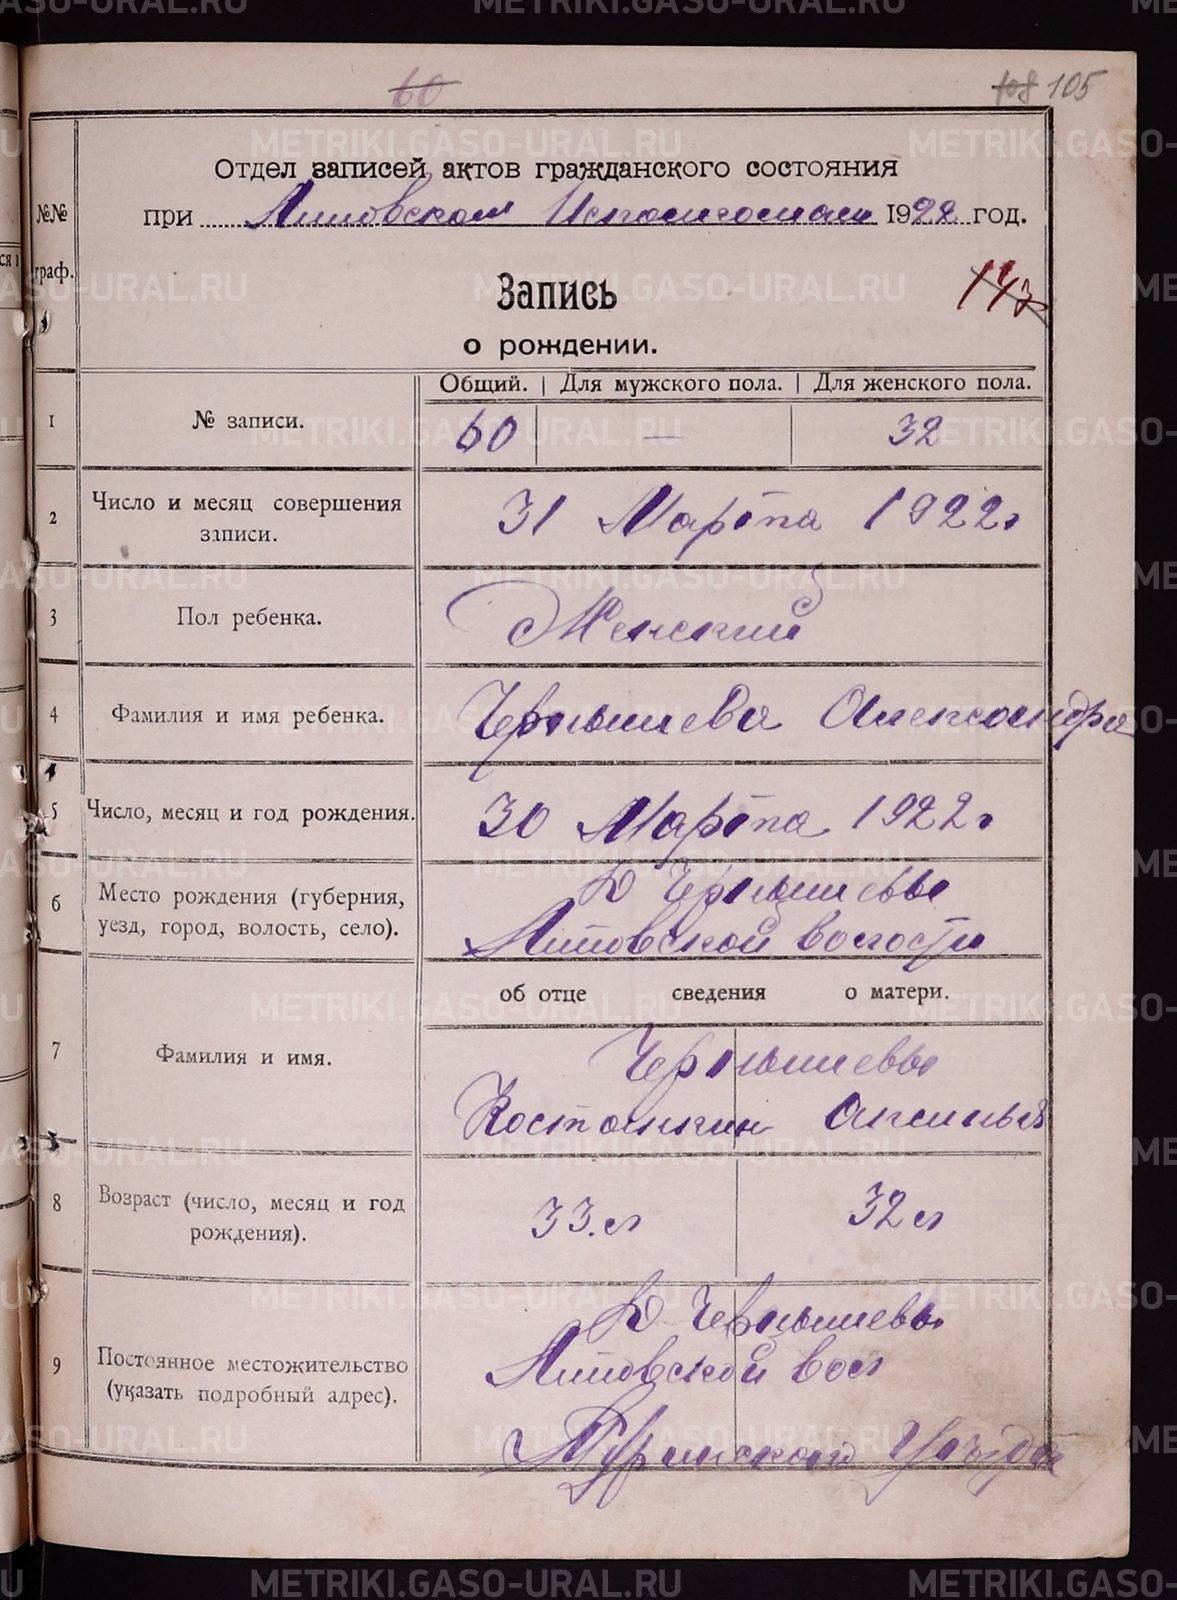 60
108 105
Отдел записей актов гражданского состояния
при Липовском Исполкоме 1922 год.
№№
граф.
Запись
о рождении.
Общий. Для мужского пола. Для женского пола.
1 № записи. 60 — 32
2 Число и месяц совершения записи. 31 Марта 1922 г
3 Пол ребенка. Женский
4 Фамилия и имя ребенка. Чернышева Александра
5 Число, месяц и год рождения. 30 Марта 1922 г
6 Место рождения (губерния, Д Чернышевы
уезд, город, волость, село). Липовской волости
об отце сведения о матери.
7 Фамилия и имя. Чернышевы
Костанкин Аксинья
8 Возраст (число, месяц и год рождения). 33.л 32 л
9 Постоянное местожительство Д Чернышевы
(указать подробный адрес). Липовской вол
Туринского Уезда
METRIKI.GASO-URAL.RU